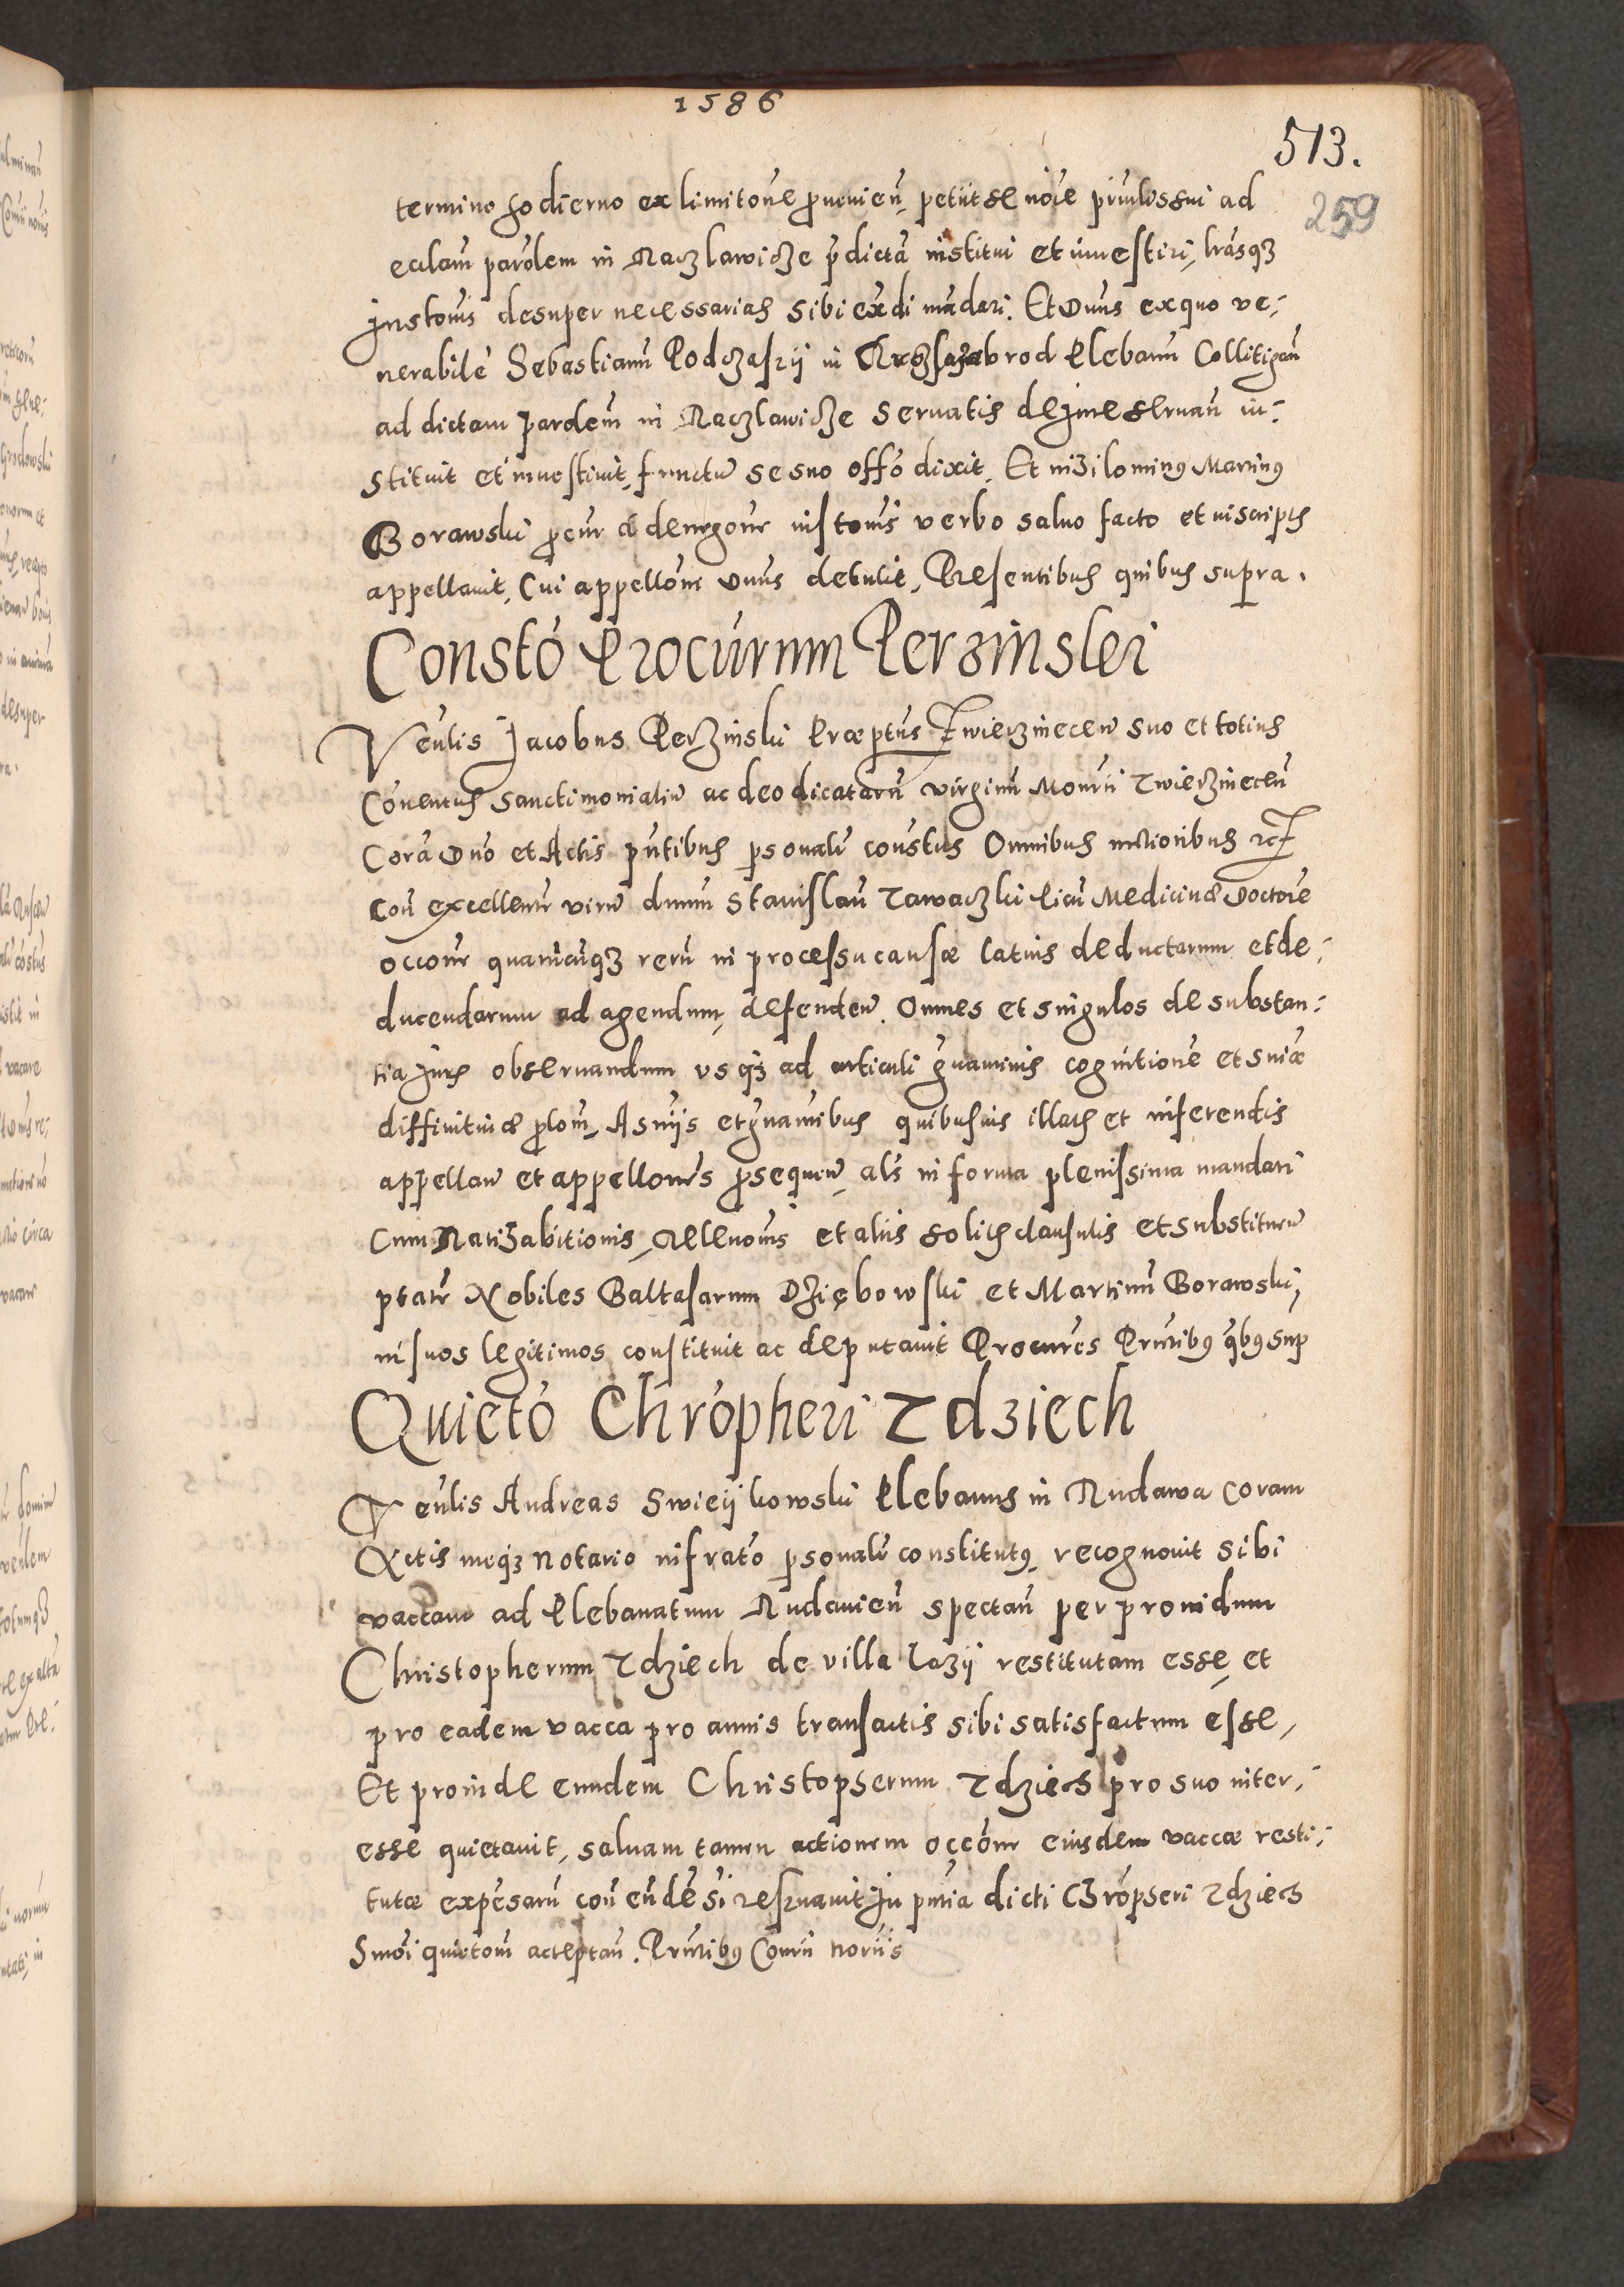 1586
513.
259
termino hodierno ex limitone provenien, petiit se noie principissui ad
ecclam parolem in Raczlawicze pdictam institui et investiri, lrasqz
instonis desuper necessarias sibi exdi mandari. Et Dnus ex quo ve-
nerabile Sebastianu Podczaszij in brod Plebanu Collitigan
ad dictam parolem in Raczlawicze servatis de jure servan in-
stituit et investivit, functu se suo offo dixit. Et nihilominus Martinus
Borawski pcur a denegone instonis verbo salvo facto et in scriptis
appellavit, Cui appellone Dnus detulit, Presentibus quibus supra.
Consto Procurum Perzinski
Venlis Jacobus Perzinski Praeptus Zwierzinecen suo et totius
Conventus sanctimonialiu ac deo dicataru virginu Monrii Zwierzinecen
Cora Dno et Actis pntibus psonalr constus Omnibus melioribus etc
con excellente viru dnum Stanislau Zawaczki Picu Medicinae Doctore
occone quarucuqz reru in processu causae latius deductarum et de-
ducendarum ad agendum, defenden. Omnes et singulos de substan-
tia juris observandum usqz ad articuli gravaminis cognitione et sniae
diffinitivae plonem, A sniis et gnaminibus quibusvis illatis et inferendis
appellan et appellones psequen, als in forma plenissima mandati
Cum Ratihabitionis, Relevonis et aliis solitis clausulis et substituen
ptate Nobiles Baltasarum Dziębowski et Martinu Borawski,
in suos legitimos constituit ac deputavit Procures Pntibus qbus sup
Quieto Chropheri Zdziech
Venlis Andreas Swieijkowski Plebanus in Rudawa coram
Actis meqz notario infrato psonalr constitutus, recognovit sibi
vaccam ad Plebanatum Rudavien spectan per providum
Christopherum Zdziech de villa Lazij restitutam esse, et
pro eadem vacca pro annis transactis sibi satisfactum esse,
Et proinde eundem Christopherum Zdziech pro suo inter-
esse quietavit, salvam tamen actionem occone eiusdem vaccae resti-
tutae expesaru con eunde si reservavit In pntia dicti Chropheri Zdziech
Smoi quietom acceptan. Pntibus Comu noriis